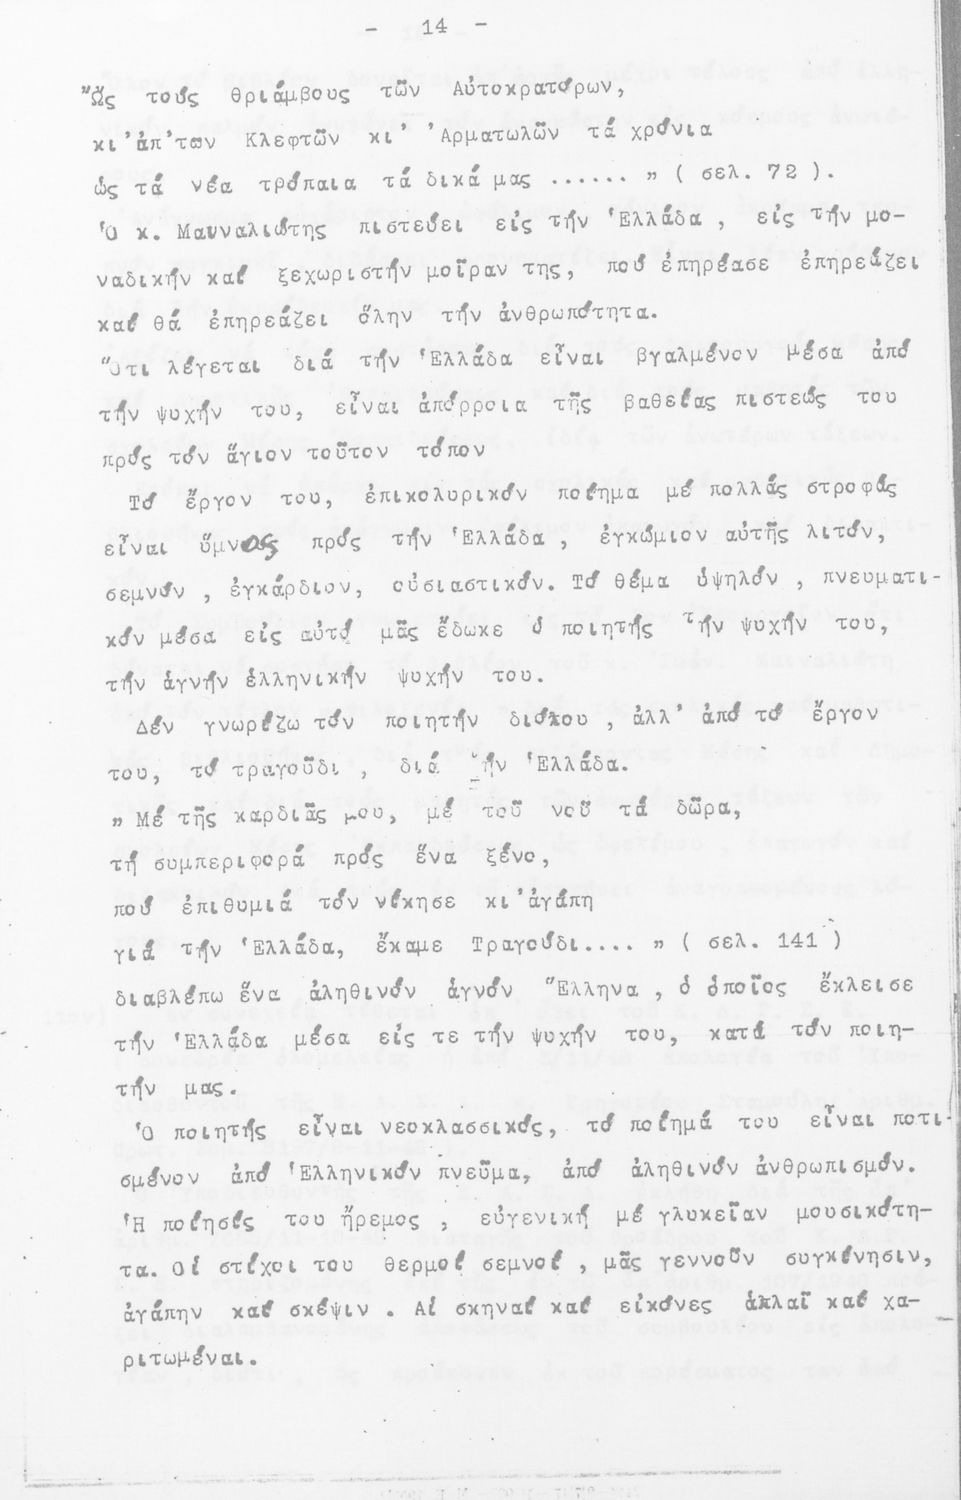 - 14 -
"Ὥς τούς θριάμβους τῶν Αὐτοκρατόρων,
κι'ἀπ'των Κλεφτῶν κι' Ἀρματωλῶν τά χρόνια
ὡς τά νέα τρόπαια τά δικά μας ...... " ( σελ. 72 ).
Ὁ κ. Μαυναλιώτης πιστεύει εἰς τήν Ἑλλάδα , εἰς τήν μο-
ναδικήν καί ξεχωριστήν μοῖραν της, πού ἐπηρέασε ἐπηρεάζει
καί θά ἐπηρεάζει ὅλην τήν ἀνθρωπότητα.
Ὅτι λέγεται διά τήν Ἑλλάδα εἶναι βγαλμένον μέσα ἀπό
τήν ψυχήν του, εἶναι ἀπόρροια τῆς βαθείας πιστεώς του
πρός τόν ἅγιον τοῦτον τόπον
Τό ἔργον του, ἐπικολυρικόν ποίημα μέ πολλάς στροφάς
εἶναι ὕμνος πρός τήν Ἑλλάδα , ἐγκώμιον αὐτῆς λιτόν,
σεμνόν , ἐγκάρδιον, οὐσιαστικόν. Τό θέμα ὑψηλόν , πνευματι-
κόν μέσα εἰς αὐτό μᾶς ἔδωκε ὁ ποιητής τήν ψυχήν του,
τήν ἁγνήν ἑλληνικήν ψυχήν του.
Δέν γνωρίζω τόν ποιητήν διόλου , ἀλλ' ἀπό τό ἔργον
του, τό τραγοῦδι , διά τήν Ἑλλάδα.
" Μέ τῆς καρδιᾶς μου, μέ τοῦ νοῦ τά δῶρα,
τή συμπεριφορά πρός ἕνα ξένο,
πού ἐπιθυμιά τόν νίκησε κι'ἀγάπη
γιά τήν Ἑλλάδα, ἔκαμε Τραγούδι.... " ( σελ. 141 )
διαβλέπω ἕνα ἀληθινόν ἁγνόν Ἕλληνα , ὁ ὁποῖος ἔκλεισε
τήν Ἑλλάδα μέσα εἰς τε τήν ψυχήν του, κατά τόν ποιη-
τήν μας.
Ὁ ποιητής εἶναι νεοκλασσικός, τό ποίημά του εἶναι ποτι-
σμένον ἀπό Ἑλληνικόν πνεῦμα, ἀπό ἀληθινόν ἀνθρωπισμόν.
Ἡ ποίησίς του ἤρεμος , εὐγενική μέ γλυκεῖαν μουσικότη-
τα. Οἱ στίχοι του θερμοί σεμνοί , μᾶς γεννοῦν συγκίνησιν,
ἀγάπην καί σκέψιν . Αἱ σκηναί καί εἰκόνες ἁπλαῖ καί χα-
ριτωμέναι.